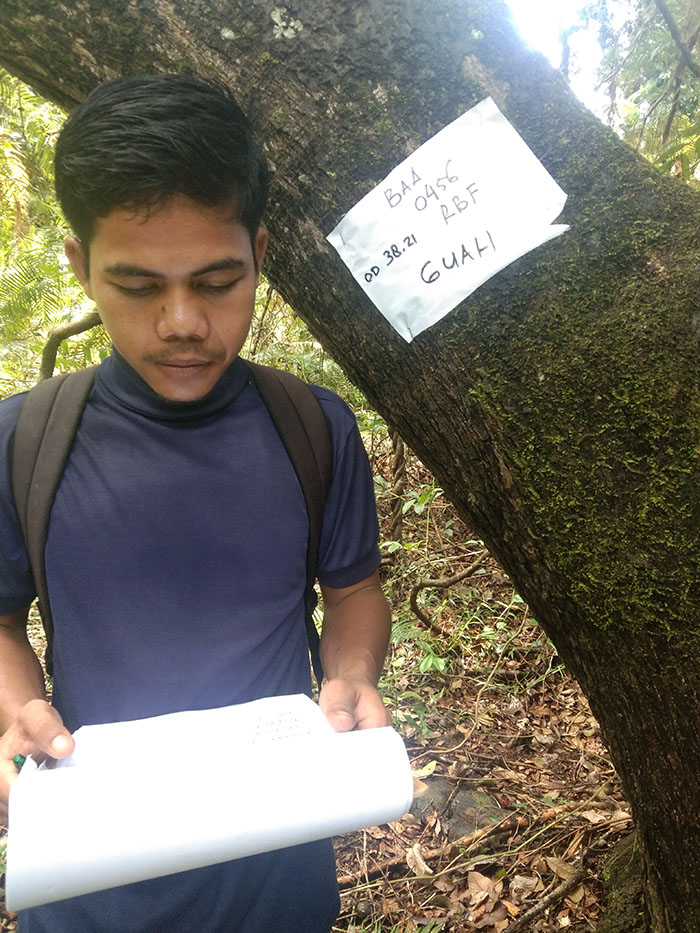 BAA
0456
RBF
OD 38.21
GUAHI